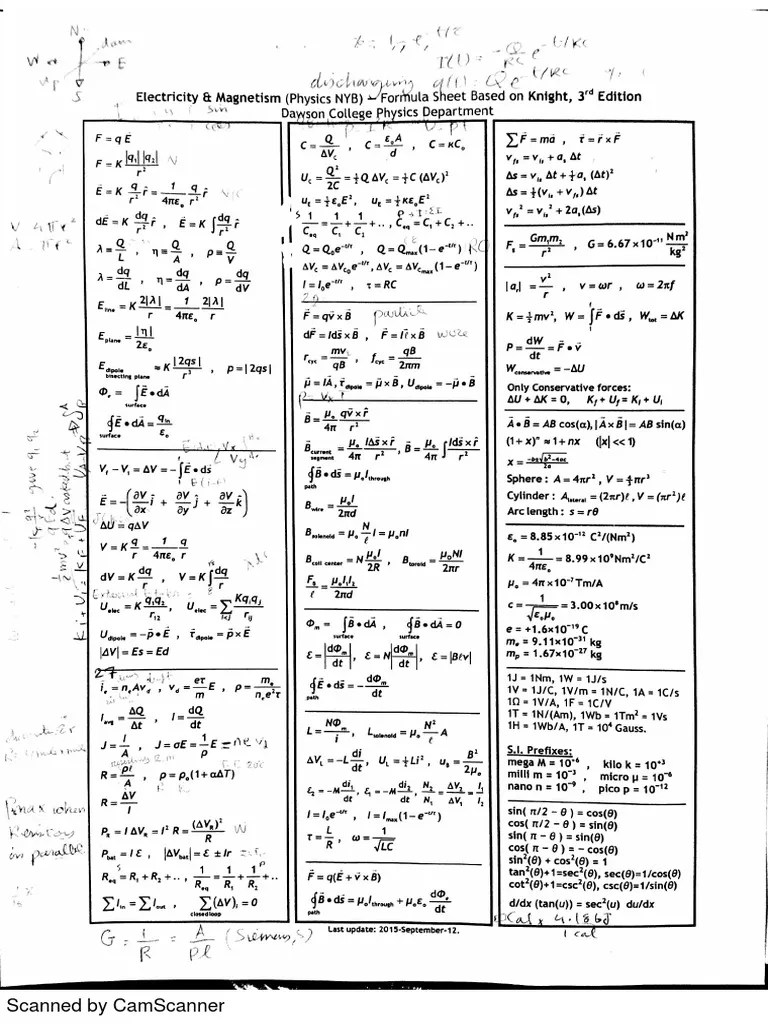 N
dam
W
E
up
S
I(t) = -Q/RC e^-t/RC
discharging q(t) = Qe^-t/RC
Electricity & Magnetism (Physics NYB) – Formula Sheet Based on Knight, 3rd Edition
Dawson College Physics Department
F = q E
F = K |q₁||q₂| / r² N
E = K q/r² r̂ = 1/4πε₀ q/r² r̂
dE = K dq/r² r̂ , E = K∫dq/r² r̂
λ = Q/L , η = Q/A , ρ = Q/V
λ = dq/dL , η = dq/dA , ρ = dq/dV
E line = K 2|λ|/r = 1/4πε₀ 2|λ|/r
E plane = |η|/2ε₀
E dipole bisecting plane ≈ K |2qs|/r³ , p = |2qs|
Φₑ = ∫E • dA surface
∮E • dA = q in/ε₀ surface
V f − V i = ΔV = −∫E • ds
E = −(∂V/∂x i + ∂V/∂y j + ∂V/∂z k)
ΔU = qΔV
V = K q/r = 1/4πε₀ q/r
dV = K dq/r , V = K∫dq/r
U elec = K q₁q₂/r₁₂ , U elec = ∑ i<j Kqᵢqⱼ/rᵢⱼ
U dipole = −p • E , τ dipole = p × E
|ΔV| = Es = Ed
iₑ = nₑAv d , v d = eτ/m E , ρ = mₑ/nₑe²τ
I avg = ΔQ/Δt , I = dQ/dt
J = I/A , J = σE = 1/ρ E
R = ρl/A , ρ = ρ₀(1 + αΔT)
R = ΔV/I
P R = I ΔV R = I² R = (ΔV R)²/R W
P bat = I ℰ , |ΔV bat| = ℰ ± Ir
R eq = R₁ + R₂ + .. , 1/R eq = 1/R₁ + 1/R₂ + ..
∑I in = ∑I out , ∑(ΔV)ᵢ = 0 closed loop
G = 1/R = A/ρl (Siemens, S)
C = Q/ΔV c , C = ε₀A/d , C = κC₀
U c = Q²/2C = ½Q ΔV c = ½C (ΔV c)²
u ε = ½ε₀E² , u ε = ½κε₀E²
1/C eq = 1/C₁ + 1/C₂ + .. , C eq = C₁ + C₂ + ..
Q = Q₀e^-t/τ , Q = Q max(1 − e^-t/τ) RC
ΔV c = ΔV c₀e^-t/τ , ΔV c = ΔV c max(1 − e^-t/τ)
I = I₀e^-t/τ , τ = RC
F = qv × B particle
dF = Ids × B , F = Iℓ × B wire
r cyc = mv/qB , f cyc = qB/2πm
μ = IA , τ dipole = μ × B , U dipole = −μ • B
B = μ₀/4π qv × r̂/r²
B current segment = μ₀/4π IΔs × r̂/r² , B = μ₀/4π ∫Ids × r̂/r²
∮B • ds = μ₀I through path
B wire = μ₀I/2πd
B solenoid = μ₀ N/ℓ I = μ₀nI
B coil center = Nμ₀I/2R , B toroid = μ₀NI/2πr
F B/ℓ = μ₀I₁I₂/2πd
Φ m = ∫B • dA surface , ∮B • dA = 0 surface
ℰ = |dΦ m/dt| , ℰ = N|dΦ m/dt| , ℰ = |Bℓv|
∮E • ds = −dΦ m/dt
L = NΦ m/i , L solenoid = μ₀ N²/ℓ A
ΔV L = −L di/dt , U L = ½Li² , u B = B²/2μ₀
ℰ₂ = −M di₁/dt , ℰ₁ = −M di₂/dt , N₂/N₁ = ΔV₂/ΔV₁ = I₁/I₂
I = I₀e^-t/τ , I = I max(1 − e^-t/τ)
τ = L/R , ω = 1/√LC
F = q(E + v × B)
∮B • ds = μ₀I through + μ₀ε₀ dΦₑ/dt path
Last update: 2015-September-12.
∑F = ma , τ = r × F
v fs = v is + aₛ Δt
Δs = v is Δt + ½aₛ (Δt)²
Δs = ½(v is + v fs) Δt
v fs² = v is² + 2aₛ(Δs)
F g = Gm₁m₂/r² , G = 6.67 x 10⁻¹¹ N m²/kg²
|a r| = v²/r , v = ωr , ω = 2πf
K = ½mv² , W = ∫F • ds , W tot = ΔK
P = dW/dt = F • v
W conservative = −ΔU
Only Conservative forces:
ΔU + ΔK = 0, K f + U f = K i + U i
A • B = AB cos(α), |A × B| = AB sin(α)
(1 + x)ⁿ ≈ 1 + nx (|x| << 1)
x = −b±√b²−4ac / 2a
Sphere : A = 4πr² , V = ⁴⁄₃πr³
Cylinder : A lateral = (2πr)ℓ , V = (πr²)ℓ
Arc length : s = rθ
ε₀ = 8.85x10⁻¹² C²/(Nm²)
K = 1/4πε₀ = 8.99x10⁹Nm²/C²
μ₀ = 4πx10⁻⁷Tm/A
c = 1/√ε₀μ₀ = 3.00x10⁸m/s
e = +1.6x10⁻¹⁹ C
mₑ = 9.11x10⁻³¹ kg
m p = 1.67x10⁻²⁷ kg
1J = 1Nm, 1W = 1J/s
1V = 1J/C, 1V/m = 1N/C, 1A = 1C/s
1Ω = 1V/A, 1F = 1C/V
1T = 1N/(Am), 1Wb = 1Tm² = 1Vs
1H = 1Wb/A, 1T = 10⁴ Gauss.
S.I. Prefixes:
mega M = 10⁺⁶ , kilo k = 10⁺³
milli m = 10⁻³ , micro μ = 10⁻⁶
nano n = 10⁻⁹ , pico p = 10⁻¹²
sin( π/2 − θ ) = cos(θ)
cos( π/2 − θ ) = sin(θ)
sin( π − θ ) = sin(θ)
cos( π − θ ) = − cos(θ)
sin²(θ) + cos²(θ) = 1
tan²(θ)+1=sec²(θ), sec(θ)=1/cos(θ)
cot²(θ)+1=csc²(θ), csc(θ)=1/sin(θ)
d/dx (tan(u)) = sec²(u) du/dx
1 cal
Pmax when
in parallel
Scanned by CamScanner